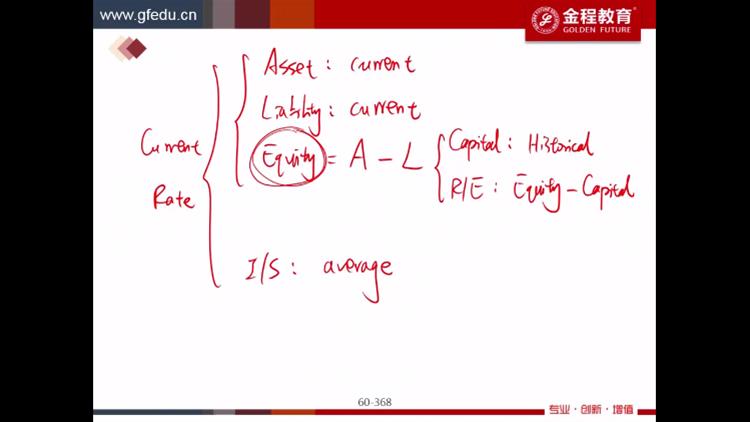 www.gfedu.cn
金程教育
GOLDEN FUTURE
Asset : current
Liability : current
Equity = A - L
Capital : Historical
R/E : Equity - Capital
Current
Rate
I/S : average
60-368
专业·创新·增值